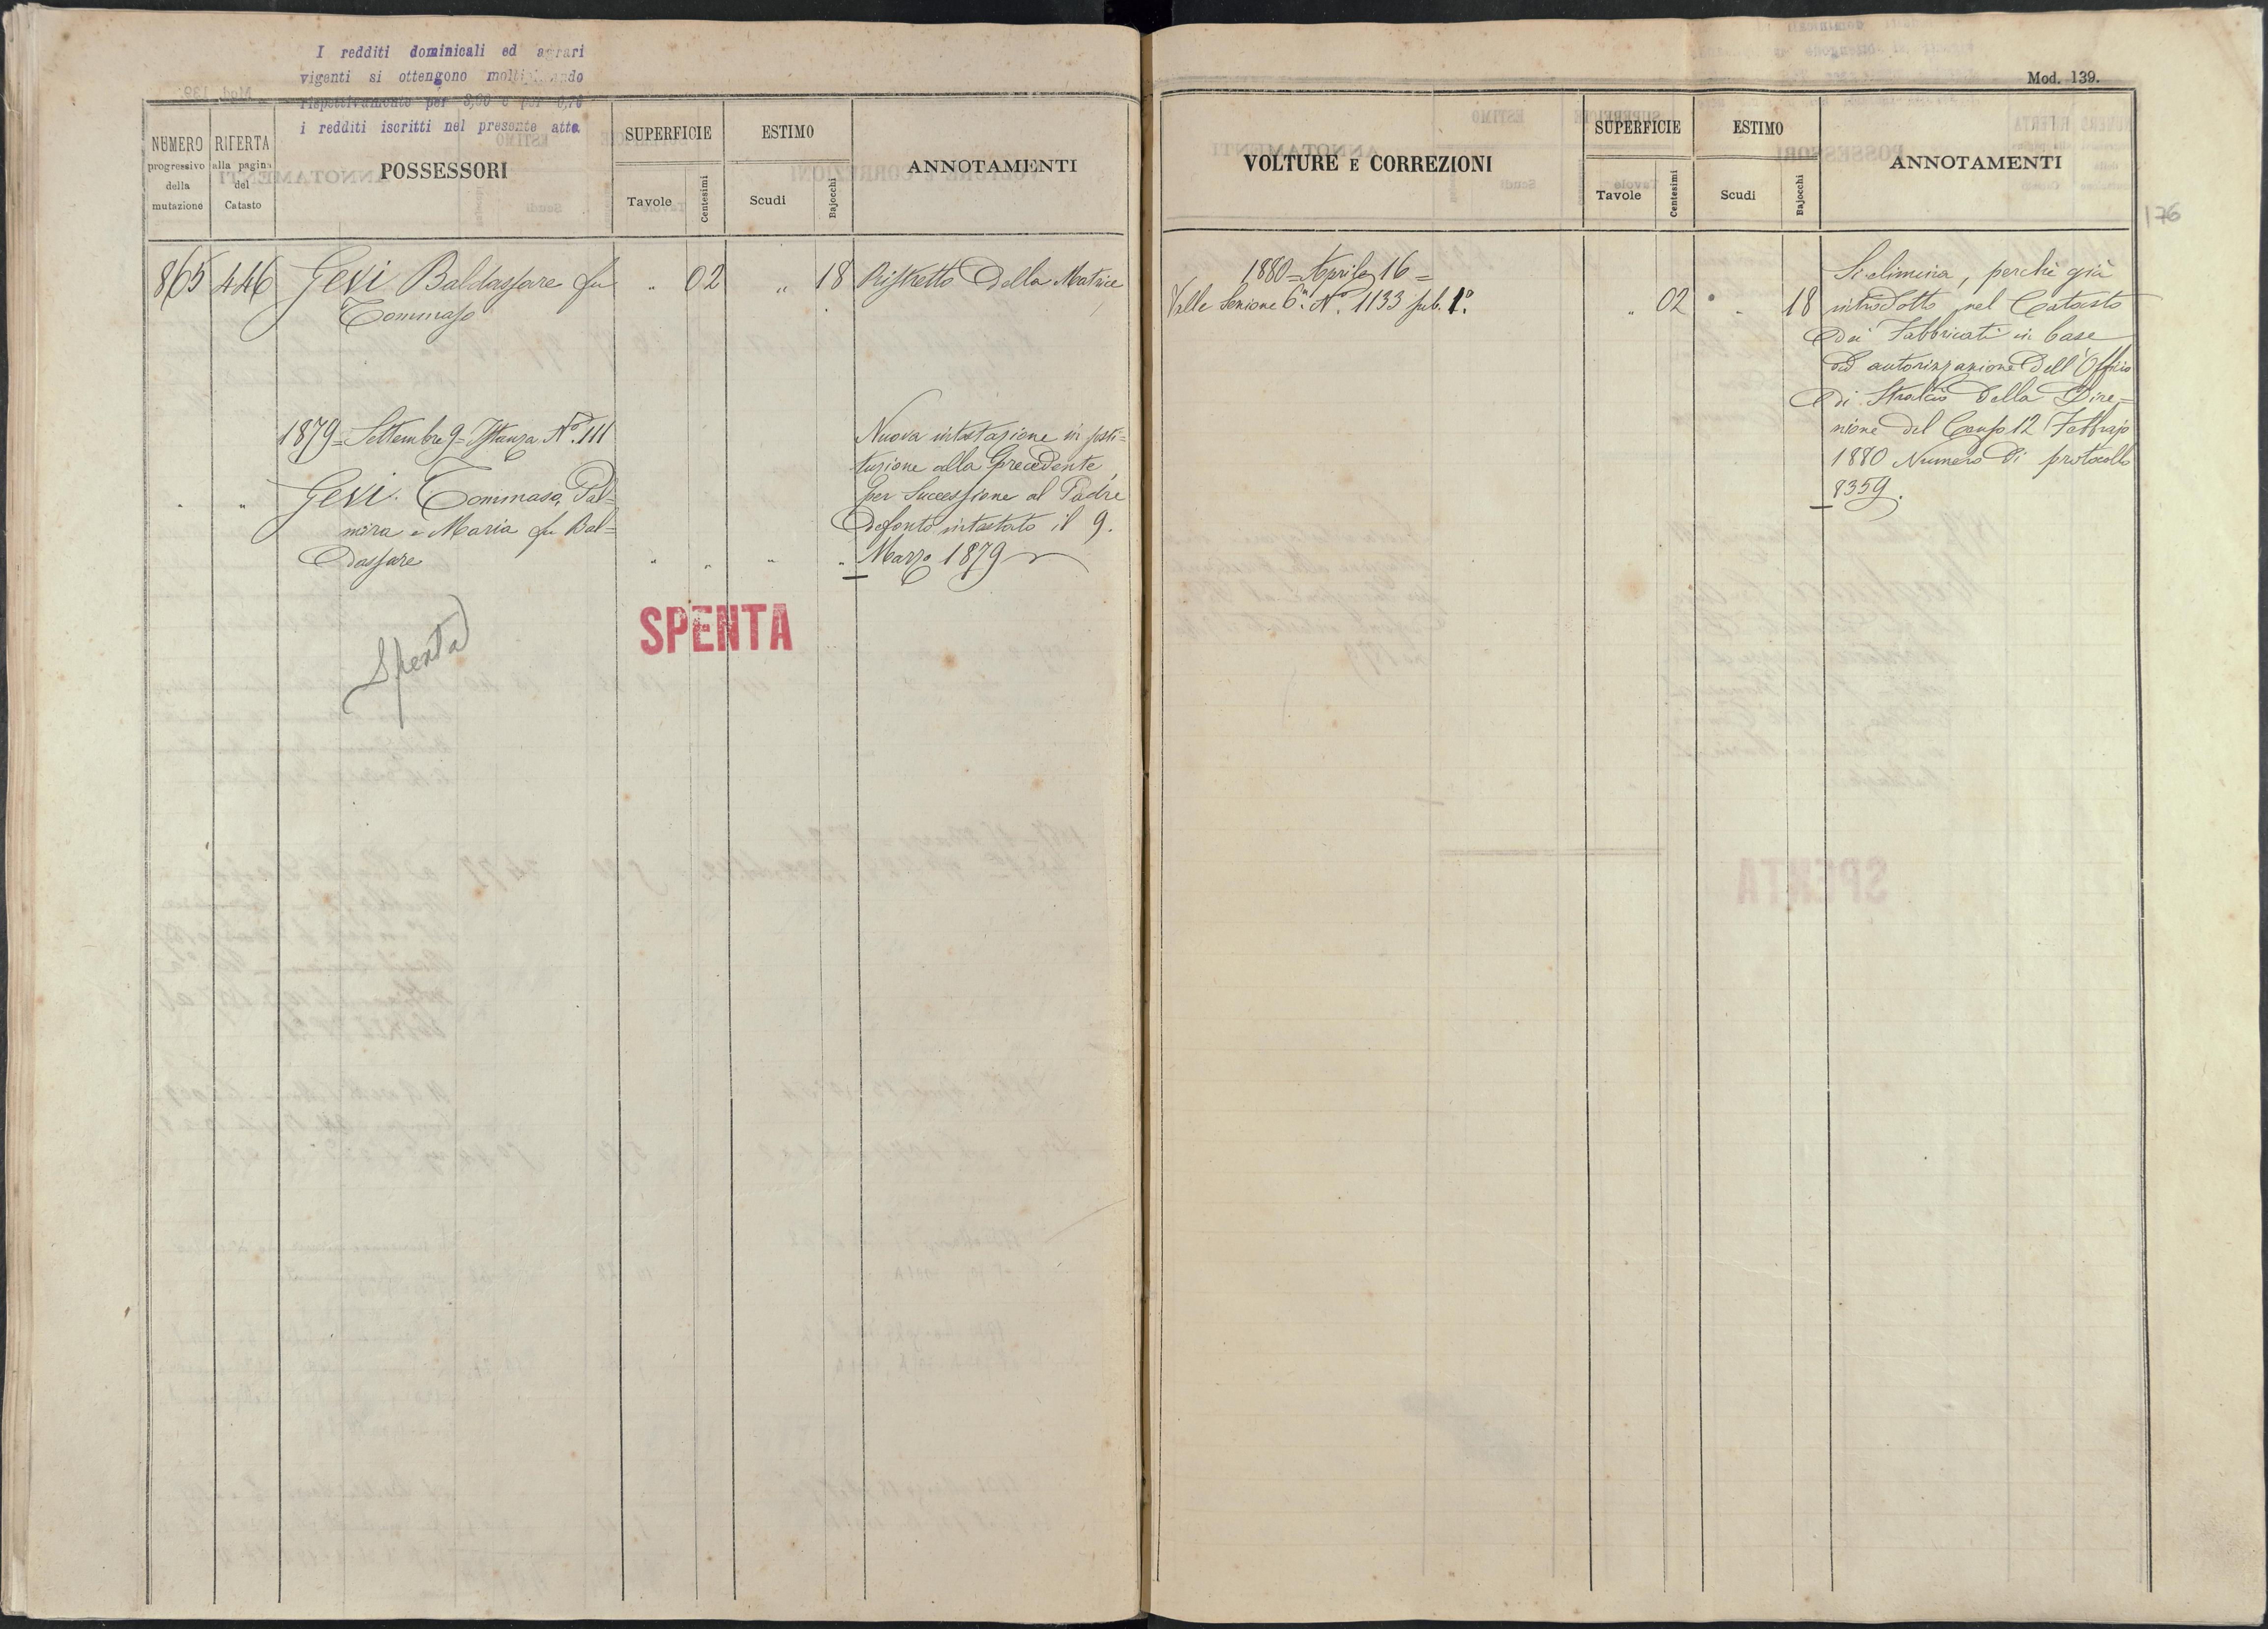 I redditi dominicali ed agrari
vigenti si ottengono moltiplicando
rispettivamente per 3,60 e per 0,70
i redditi iscritti nel presente atto.
NUMERO
progressivo
della
mutazione
RIFERTA
alla pagina
del
Catasto
POSSESSORI
SUPERFICIE
Tavole
Centesimi
ESTIMO
Scudi
Bajocchi
ANNOTAMENTI
865 446 Gevi Baldassare fu " 02 " 18 Ristretto della Matrice
Tommaso
1879 = Settembre 9 = Istanza N.º 111
" " Gevi Tommaso, Pal=
mira e Maria fu Bal=
dassare " " " "
Nuova intestazione in sosti=
tuzione alla precedente,
per Successione al Padre
defonto intestato il 9.
Marzo 1879
Spenta
SPENTA
Mod. 139.
176
VOLTURE E CORREZIONI
SUPERFICIE
Tavole
Centesimi
ESTIMO
Scudi
Bajocchi
ANNOTAMENTI
1880 = Aprile 16 =
Valle Sezione 6ª N.º 1133 sub. 1.º " 02 " 18
Si elimina, perchè già
introdotto nel Catasto
dei Fabbricati in base
ad autorizzazione dell'Offizio
di Stralcio della Dire=
zione del Censo 12 Febbrajo
1880 Numero di protocollo
8359.